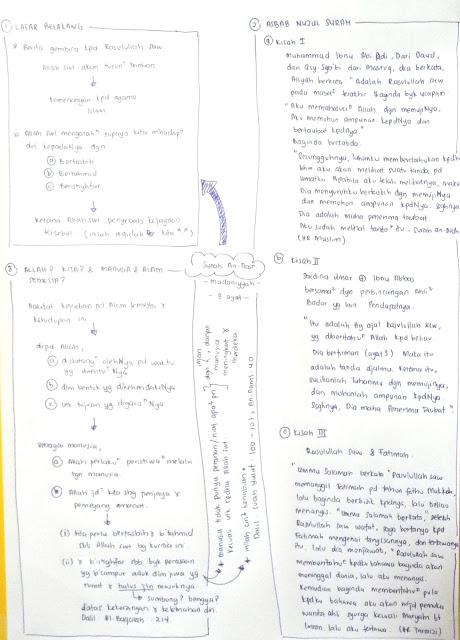 ① LATAR BELAKANG
* Berita gembira kpd Rasulullah saw
Allah swt akan turun² bantuan
Kemenangan kpd agama
Islam
* Allah swt mengarah² supaya kita m'hadap²
diri kepadaNya dgn
ⓐ Bertasbih
ⓑ Bertahmid
ⓒ Beristighfar
Kerana Allah swt penyebab kejayaan
Kisrbul (insan sepicislah kita ^^)
② ASBAB NUZUL SURAH
ⓐ Kisah I
Muhammad Ibnu Abi Adi, Dari Daud,
dari Asy-Sya'bi dari Masroq, dia berkata,
Aisyah berkata "Adalah Rasulullah saw
pada masa² terakhir Baginda byk ucapkan
"Aku memahasuci² Allah dgn memujiNya,
Aku memohon ampunan kepdNya dan
bertaubat kpdnya."
Baginda bersabda.
"Sesungguhnya, tuhanku memberitahukan kepdku
bhw aku akan melihat suatu tanda pd
umatku. Apabila aku telah melihatnya, maka
Dia menyuruhku bertasbih dgn memujiNya
dan memohon ampunan kepdNya. Sghnya
Dia adalah maha penerima taubat
Aku sudah melihat tanda² itu - Surah an-Nasr
(HR Muslim)
ⓑ Kisah II
Saidina Umar & Ibnu Abbas
bersama² dgn perbincangan Ahli²
Badar yg lain. Pendapatnya.
"Itu adalah ttg ajal Rasulullah saw,
yg diberitahu² Allah kpd beliau.
Dia berfirman (ayat 1). Maka itu
adalah tanda ajalmu. Kerana itu,
sucikanlah Tuhanmu dgn memujinya,
dan mohonlah ampunan kpdNya.
Ssghnya, Dia maha Penerima Taubat".
ⓒ Kisah III
Rasulullah saw & Fatimah.
"Ummu Salamah berkata "Rasulullah saw
memanggil Fatimah pd tahun Fathu Makkah,
lalu baginda berbisik kpdnya, lalu beliau
menangis. "Ummu Salamah berkata" setelah
Rasulullah saw wafat, saya bertanya kpd
Fatimah mengenai tangisannya, dan tertawanya
itu, lalu dia menjawab, "Rasulullah saw
memberitahu² kpdku bahawa baginda akan
meninggal dunia, lalu aku menangis.
Kemudian baginda memberitahu² pula
kpdku bahawa aku akan mjd pemuka
wanita ahli syurga kecuali Maryam bt
Imran, lalu aku tertawa. (HR Tarmizi)
③ ALLAH? KITA? & MANUSIA & ALAM
SEMESTA?
Hakikat kejadian pd Alam semesta &
kehidupan ini
drpd Allah,
ⓐ didatang² olehNya pd waktu
yg ditentu² Nya
ⓑ dlm bentuk yg dikehendakiNya
ⓒ utk tujuan yg digaris² Nya.
Sebagai manusia,
ⓐ Allah perlaku² peristiwa² melalui
tgn manusia
ⓑ Allah jd² kita sbg penjaga &
pemegang amanat.
(i) kita perlu bertasbih & b'tahmid
sbb Allah swt bg kurnia ini
(ii) & b'istighfar sbb byk perasaan
yg b'campur aduk dlm jiwa yg
rumit & halus jln masuknya.
sombong? bangga?
datar kekurangan & kelemahan diri.
Dalil Al-Baqarah 214
Surah An-Nasr
- Madaniyyah -
- 3 ayat -
* manusia tidak punya peranan/nilai apa² pn
kecuali utk redha Allah swt
* inilah ciri² kenabian
Dalil (Surah Yusuf: 100-101, An-Naml: 40